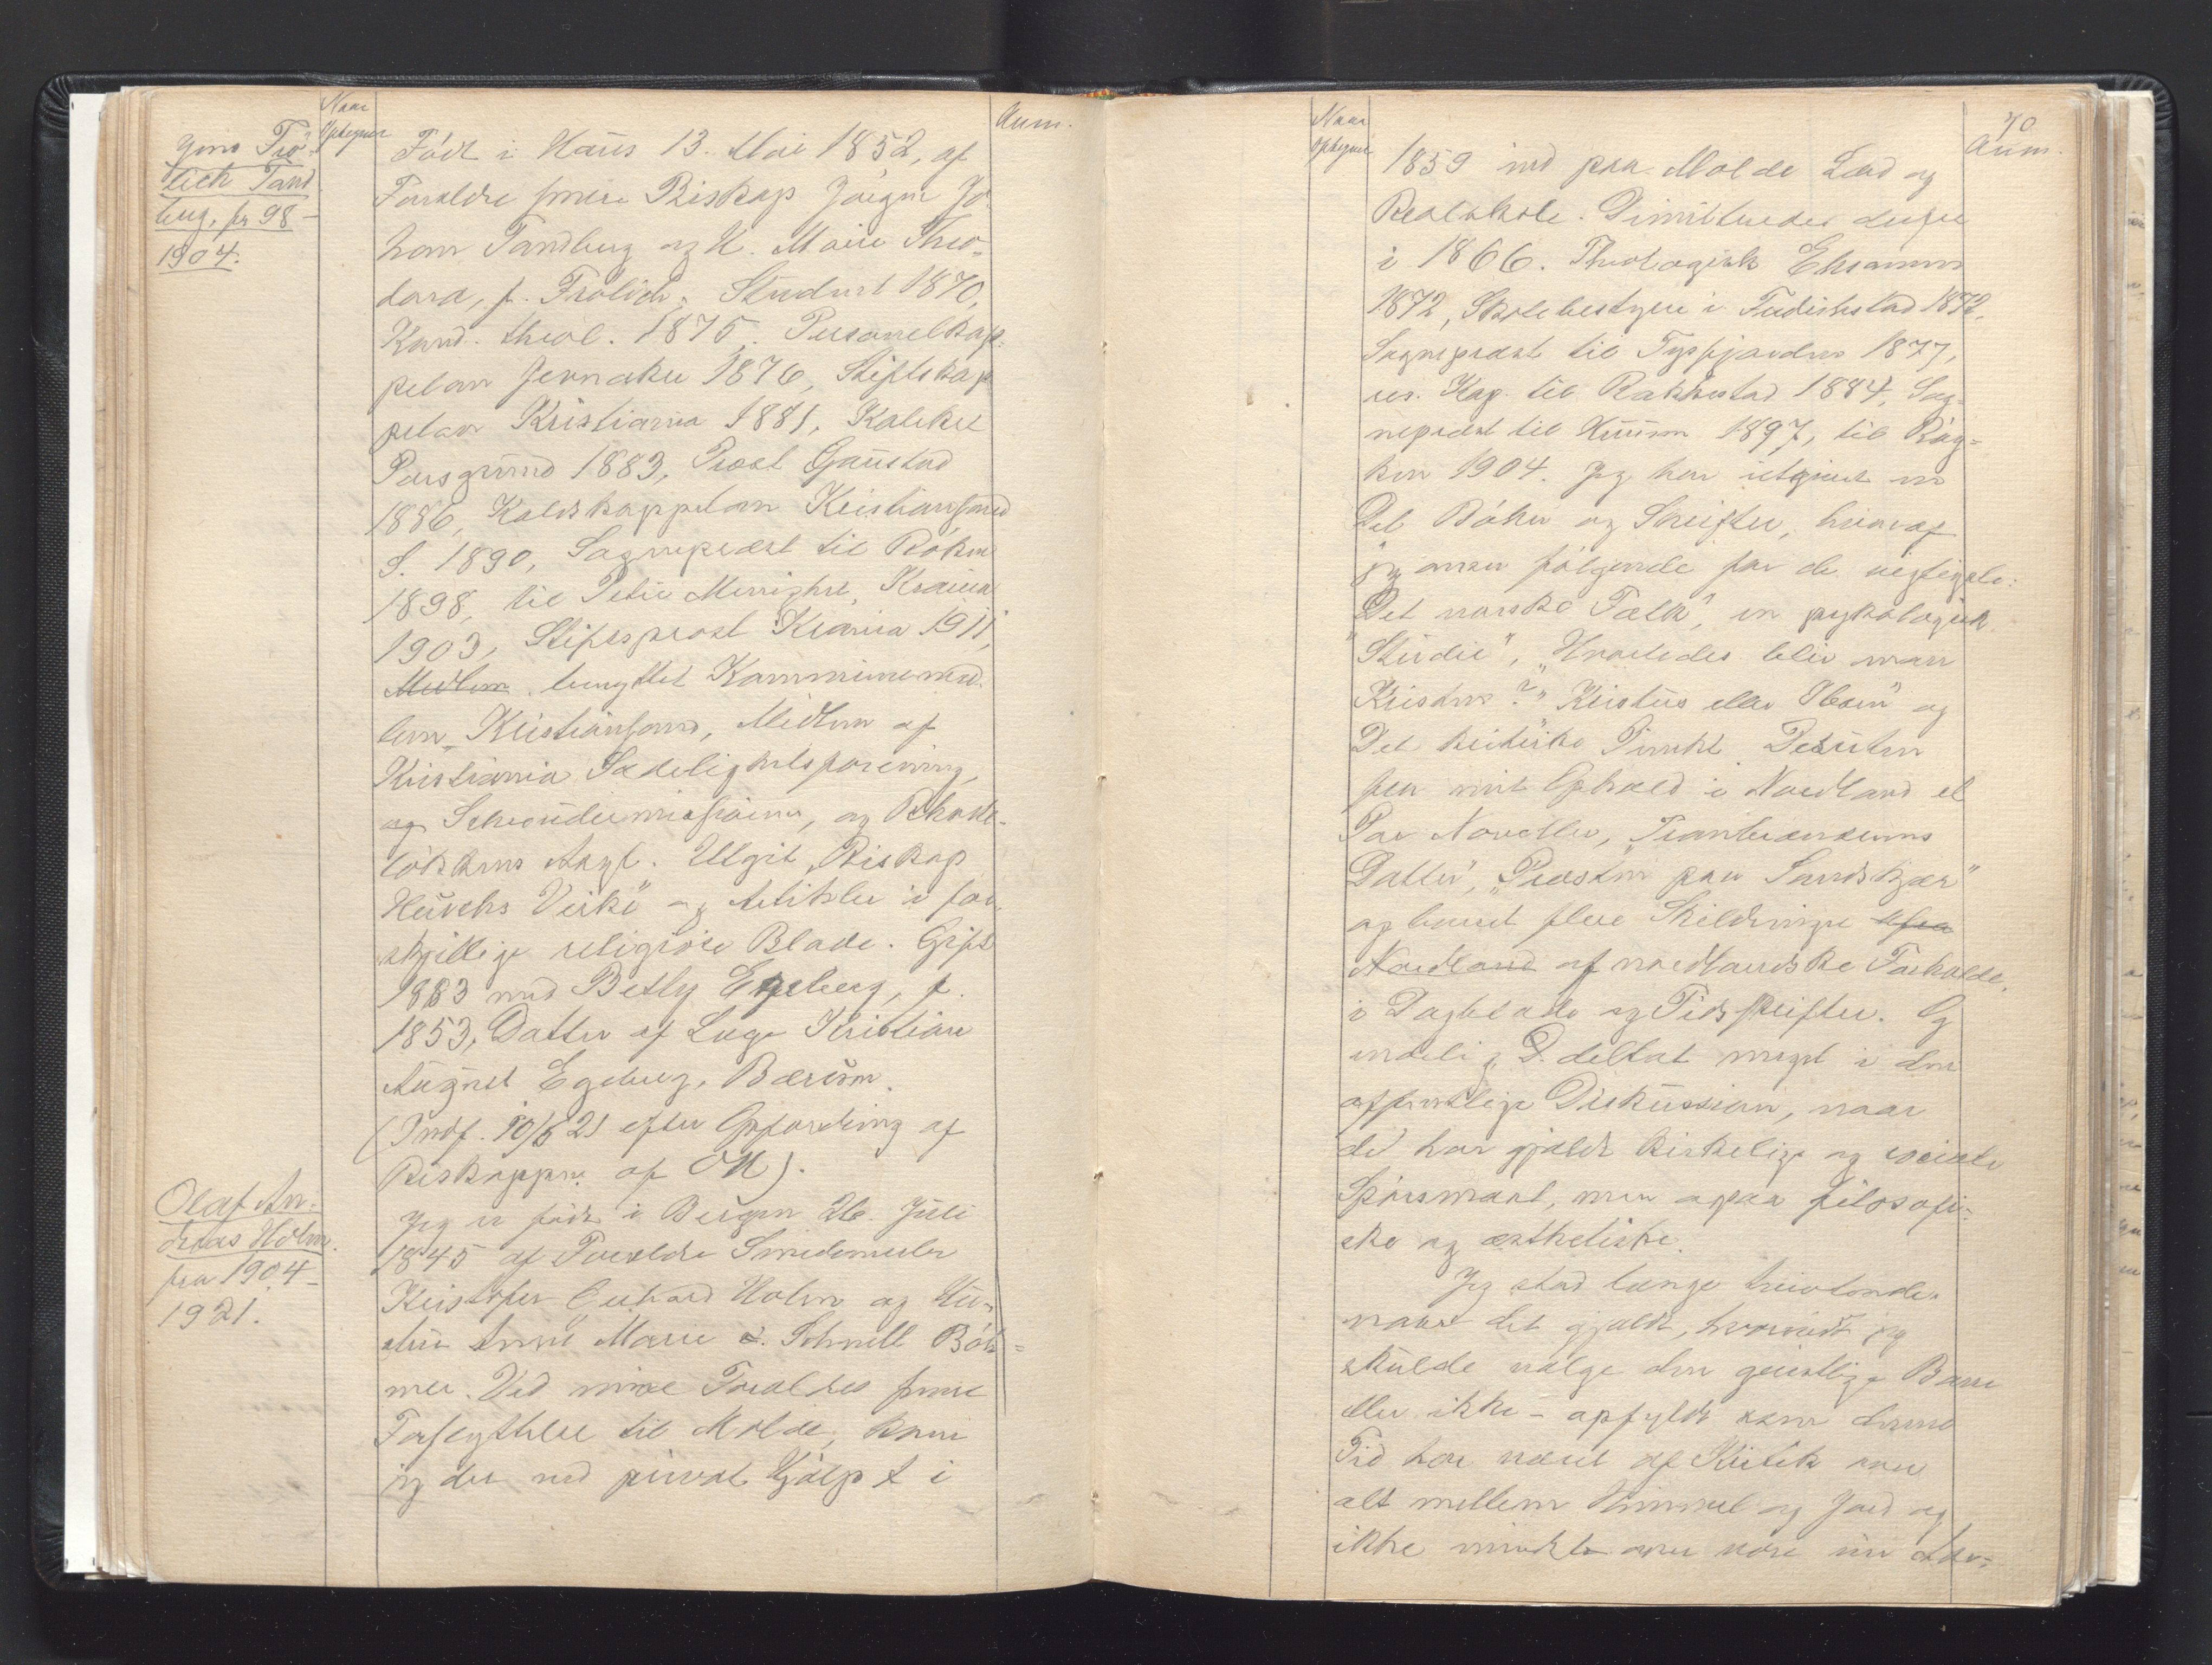 Naar
Optegnet
Anm.
Jens Frö-
lich Tand
berg, fr 98-
1904.
Födt i Haus 13. Mai 1852, af
Foraldre senere Biskop Jörgen Jo-
han Tandberg og H. Marie Theo-
dora, f. Frölich. Student 1870,
Kand. theol. 1875. Personelkap-
pelan Jevnaker 1876, Stiftskap
pelan Kristiania 1881, Kateket
Porsgrund 1883, Præst Gaustad
1886, Kaldskappelan Kristiansand
S. 1890, Sogneprest til Röken
1898, til Petri Menighet, Krania
1903, Stiftsprost Krania 1911,
Medlem benyttet Kommunemed-
lem Kristiansand, Medlem af
Kristiania Sædelighetsforening
og Schreudermissionen, og
Utgit „Biskop
Heuchs Virke" og Artikler i for-
skjellige religiöse Blade. Gift
1883 med Betly Egeberg, f.
1853, Datter af Læge Kristian
August Egeberg, Bærum.
(Indf. 10/5 21 efter Opfordring af
Biskoppen af OH).
Olaf An-
dreas Holm.
fra 1904-
1921.
Jeg er födt i Bergen 26. Juli
1845 af Foreldre Smedemester
Kristofer Holm og Hu-
stru Anne Marie Schnell Böh-
mer. Ved mine Foreldres senere
Forflyttelse til Molde, kom
jeg der ved privat Hjælp i
Naar
Optegnet
70
Anm.
1859 ind paa Molde Lærd og
Realskole. Dimitteredes derfra
i 1866. Theologisk Eksamen
1872, Skolebestyrer i Fredrikstad 1872,
Sogneprest til Tysfjorden 1877,
res. Kap. til Rakkestad 1884, Sog-
neprest til Hurum 1897, til Røy-
ken 1904. Jeg har utgivet en
Del Böker og Skrifter, hvoraf
jeg anser fölgende for de vigtigste:
"Det norske Folk", en psykologisk
Studie", „Hvorledes blir man
Kristen?" „Kristus eller Ibsen" og
Det kritiske Punkt. Desuten
fra mit Ophold i Nordland et
Par Noveller, „
Datter", „Præsten paa Sandskjær"
og levert flere Skildringer ufra
Nordland af nordlandske Forholde,
i Dagblade og Tidsskrifter. Og
endelig D. deltat meget i den
offentlige Diskussion, naar
det har gjældt kirkelige og sociale
Spörsmaal, men ogsaa filosofi-
ske og æsthetiske.
Jeg stod længe tvivlende.
naar det gjaldt, hvorvidt jeg
skulde vælge den geistlige Bane
eller ikke - opfyldt som denne
Tid har været af Kritik over
alt mellem Himmel og Jord og
ikke mindst over vore